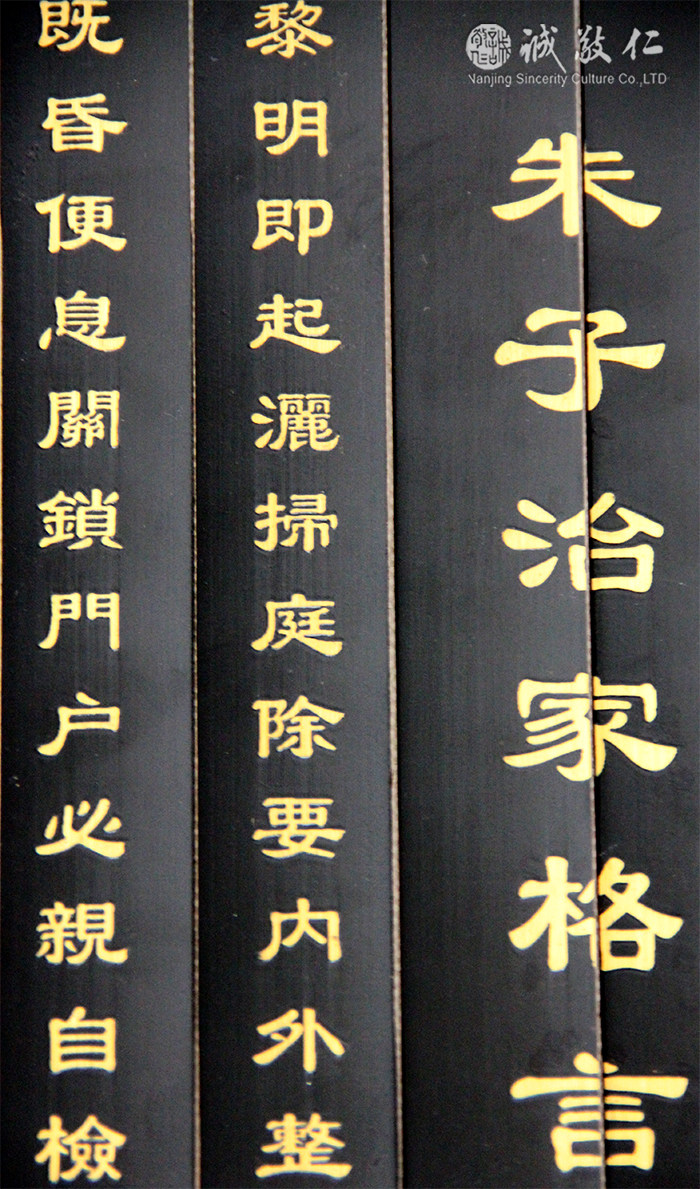 誠敬仁
Nanjing Sincerity Culture Co.,LTD
朱子治家格言
黎明即起灑掃庭除要内外整
既昏便息關鎖門户必親自檢